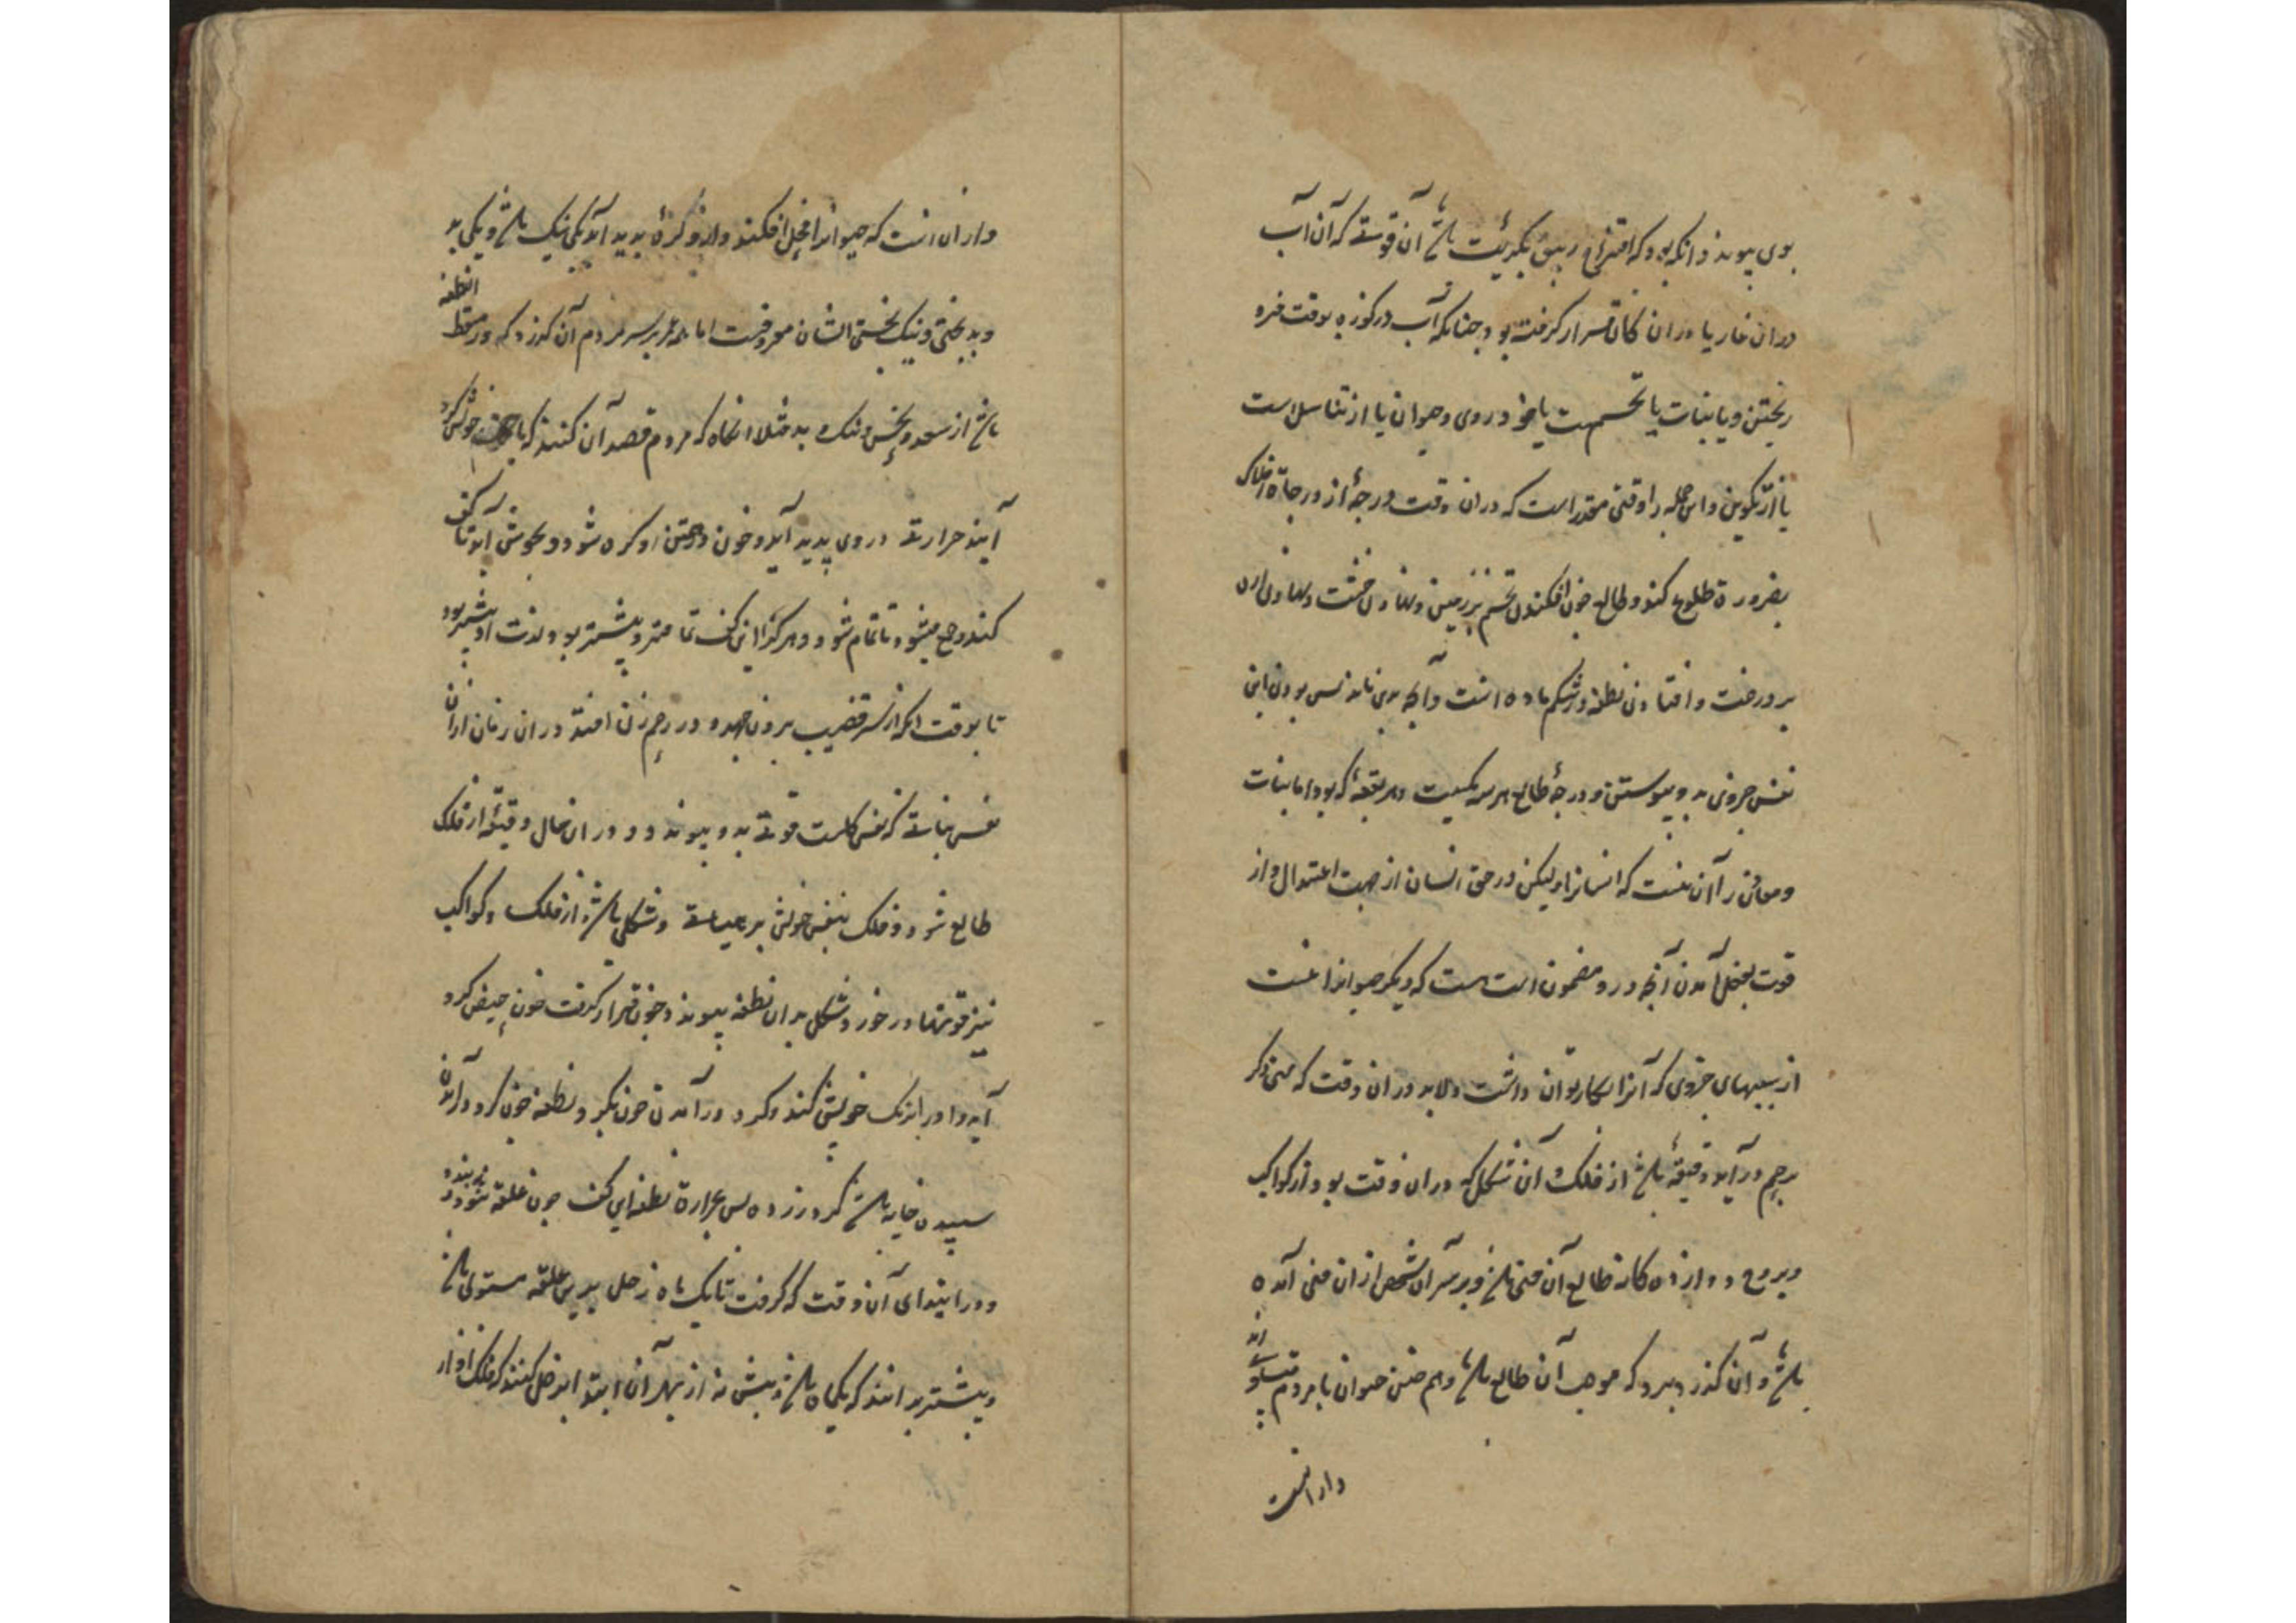 بوی پیوند و انکه بود که امتزاج زیبق بکبریت باشد آن قوتی که آن آب
دران غار یا دران کان قرار گرفته بود چنانکه آب در کوزه بوقت
ریختن و یا نبات یا تخمست یا خود روی و حیوان یا از تناسل است
یا از تکوین و این جمله را وقتی مقدر است که دران وقت درجهٔ از درجات افلاک
بضرورة طلوع کند و طالع چون افکندن تخم بر زمین و نهادن خشت و نهادن اره
بر درخت و افتادن نطفه در شکم ماده است و آنچه بدین ماند پس بودن این
نفس جزوی بدو پیوستن و درجهٔ طالع هر سه یکیست بهر بقعهٔ که بود اما نبات
و معادن را آن نیست که انسانرا و لیکن در حق انسان از جهت اعتدال و از
قوت بفعل آمدن آنچه درو مضمون است هست که دیگر حیوانرا نیست
از سببهای جزوی که آنرا انکار نتوان داشت و لابد دران وقت که منی ذکر
برحم در آید دقیقهٔ باشد از فلک و آن شکل که دران وقت بود از کواکب
و بروج دوازده گانه طالع آن منی باشد و بر سر آن شخص از ان منی آمده
باشد و آن گذرد بدو که موجب آن طالع باشد و هم چنین حیوان با مردم تساوی
دارد انست
و ار ان است که حیوانرا فحل افکنند و ازو کره پدید آید یکی نیک باشد و یکی بد
و بدبختی و نیک بختی ایشان معروفست اما همه عمر بر سر مردم آن گذرد که در مسقط النطفه
باشد از سعد و نحس و نیک و بد مثلا انگاه که مردم قصد آن کنند که با جفت خویش گرد
آیند حرارتی در وی پدید آید و خون در تن او گرم شود و بجوش آید تا کف
کند و جمع میشود تا تمام شود و هر کرا این کف تمامتر و بیشتر بود لذت او بیشتر بود
تا بوقت انکه از سر قضیب برون جهد و در رحم زن افتد دران زمان از ان
نفس نباتی که نفس کلست قوتی بدو پیوندد و دران حال دقیقهٔ از فلک
طالع شود و فلک بنفس خویش بر هیاتی و شکلی باشد از فلک و کواکب
نیز قوتها در خورد شکل بدان نطفه پیوندد چون قرار گرفت خون حیض گرد
آید و او را برنگ خویش کند و گرد در آمدن خون بگرد نطفه چون گرد در آمدن
سپیده خایه باشد گرد زرده پس بحرارة نطفه این کف چون علقه شود و ببندد
و در ابتدای آن وقت که گرفت تا یک ماه زحل بدین علقه مستولی باشد
و بیشتر بدانند که یکماه باشد و بیش نه از بهر آن ابتدا بزحل کنند که فلک او از